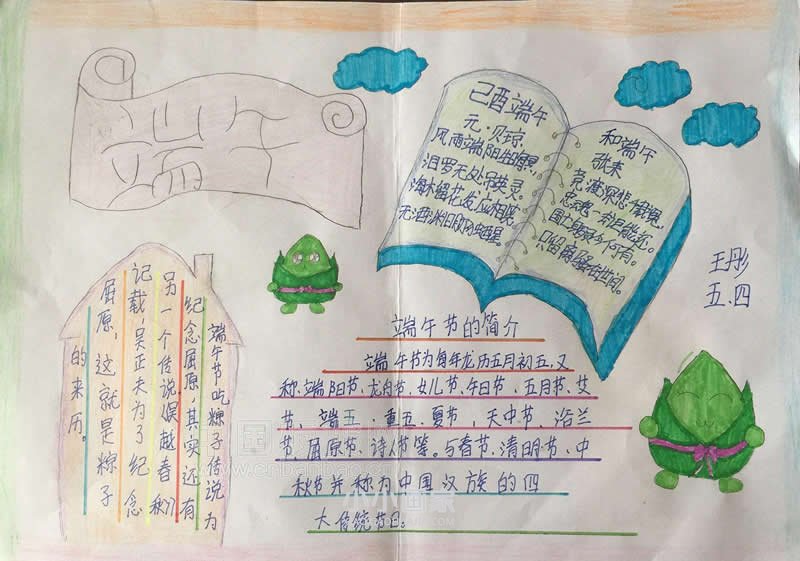 端午
己酉端午
元.贝琼
风雨端阳生晦冥，
汨罗无处吊英灵。
海榴花发应相笑，
无酒渊明亦独醒。
和端午
张耒
竞渡深悲千载冤，
忠魂一去讵能还。
国亡身殒今何有，
只留离骚在世间。
王彤
五.四
端午节吃粽子传说为
纪念屈原，其实还有
另一个传说
记载，吴正夫为了纪念
屈原，这就是粽子
的来历。
端午节的简介
端午节为每年龙历五月初五，又
称端阳节、龙舟节、女儿节、午日节、五月节、艾
节、端五、重五、夏节，天中节、浴兰
节、屈原节、诗人节等。与春节、清明节、中
秋节并称为中国汉族的四
大传统节日。